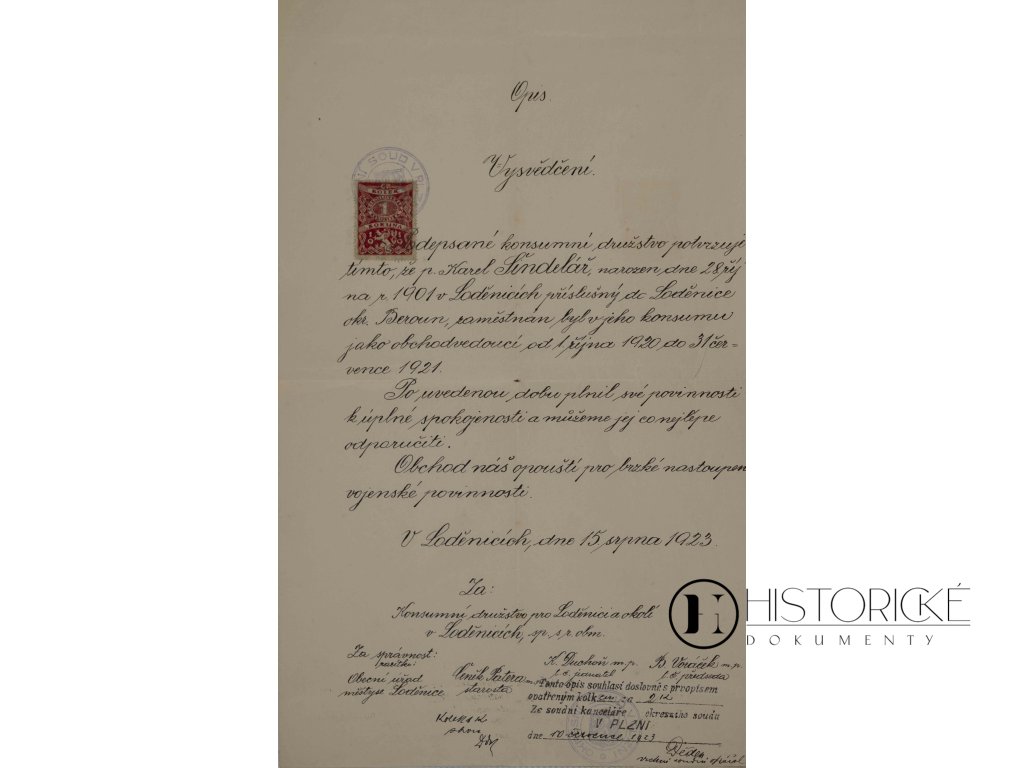 Opis.
Vysvědčení.
SOUD V PLZ
KOLEK
1
KORUNA
1919
Podepsané konsumní družstvo potvrzuje
tímto, že p. Karel Šindelář, narozen dne 28. říj
na r. 1901 v Loděnicích příslušný do Loděnice
okr. Beroun, zaměstnán byl v jeho konsumu
jako obchodvedoucí od 1 října 1920 do 31 čer-
vence 1921.
Po uvedenou dobu plnil své povinnosti
k úplné spokojenosti a můžeme jej co nejlépe
odporučiti.
Obchod náš opouští pro brzké nastoupen
vojenské povinnosti.
V Loděnicích, dne 15. srpna 1923.
Za:
Konsumní družstvo pro Loděnici a okolí
v Loděnicích, sp. s r. obm.
Za správnost:
razítko
Obecní úřad
městyse Loděnice
Čeněk Patera
starosta
K. Duchoň m.p.
t. č. jednatel
B. Voráček m.p.
t. č. předseda
Tento opis souhlasí doslovně s prvopisem
opatřeným kolkem za 2 K
Ze soudní kanceláře okresního soudu
V PLZNI
dne 10 července 1923
Děder
vrchní soudní oficiál
Kolek 1 K
HISTORICKÉ
DOKUMENTY